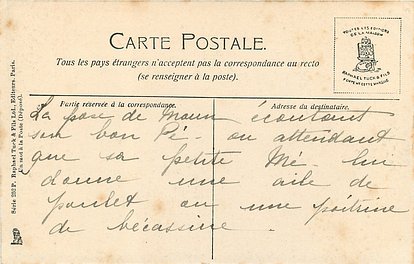 CARTE POSTALE.
Tous les pays étrangers n'acceptent pas la correspondance au recto
(se renseigner à la poste).
TOUTES LES EDITIONS
DE LA MAISON
RAPHAEL TUCK & FILS
PORTENT CETTE MARQUE
Partie réservée à la correspondance.
Adresse du destinataire.
Série 302 P. Raphael Tuck & Fils Ltd., Editeurs, Paris.
Un mot à la Poste (Déposé).
La pose de Moun écoutant
son bon Pé - ou attendant
que sa petite Mé - lui
donne une aile de
poulet ou une poitrine
de bécassine.